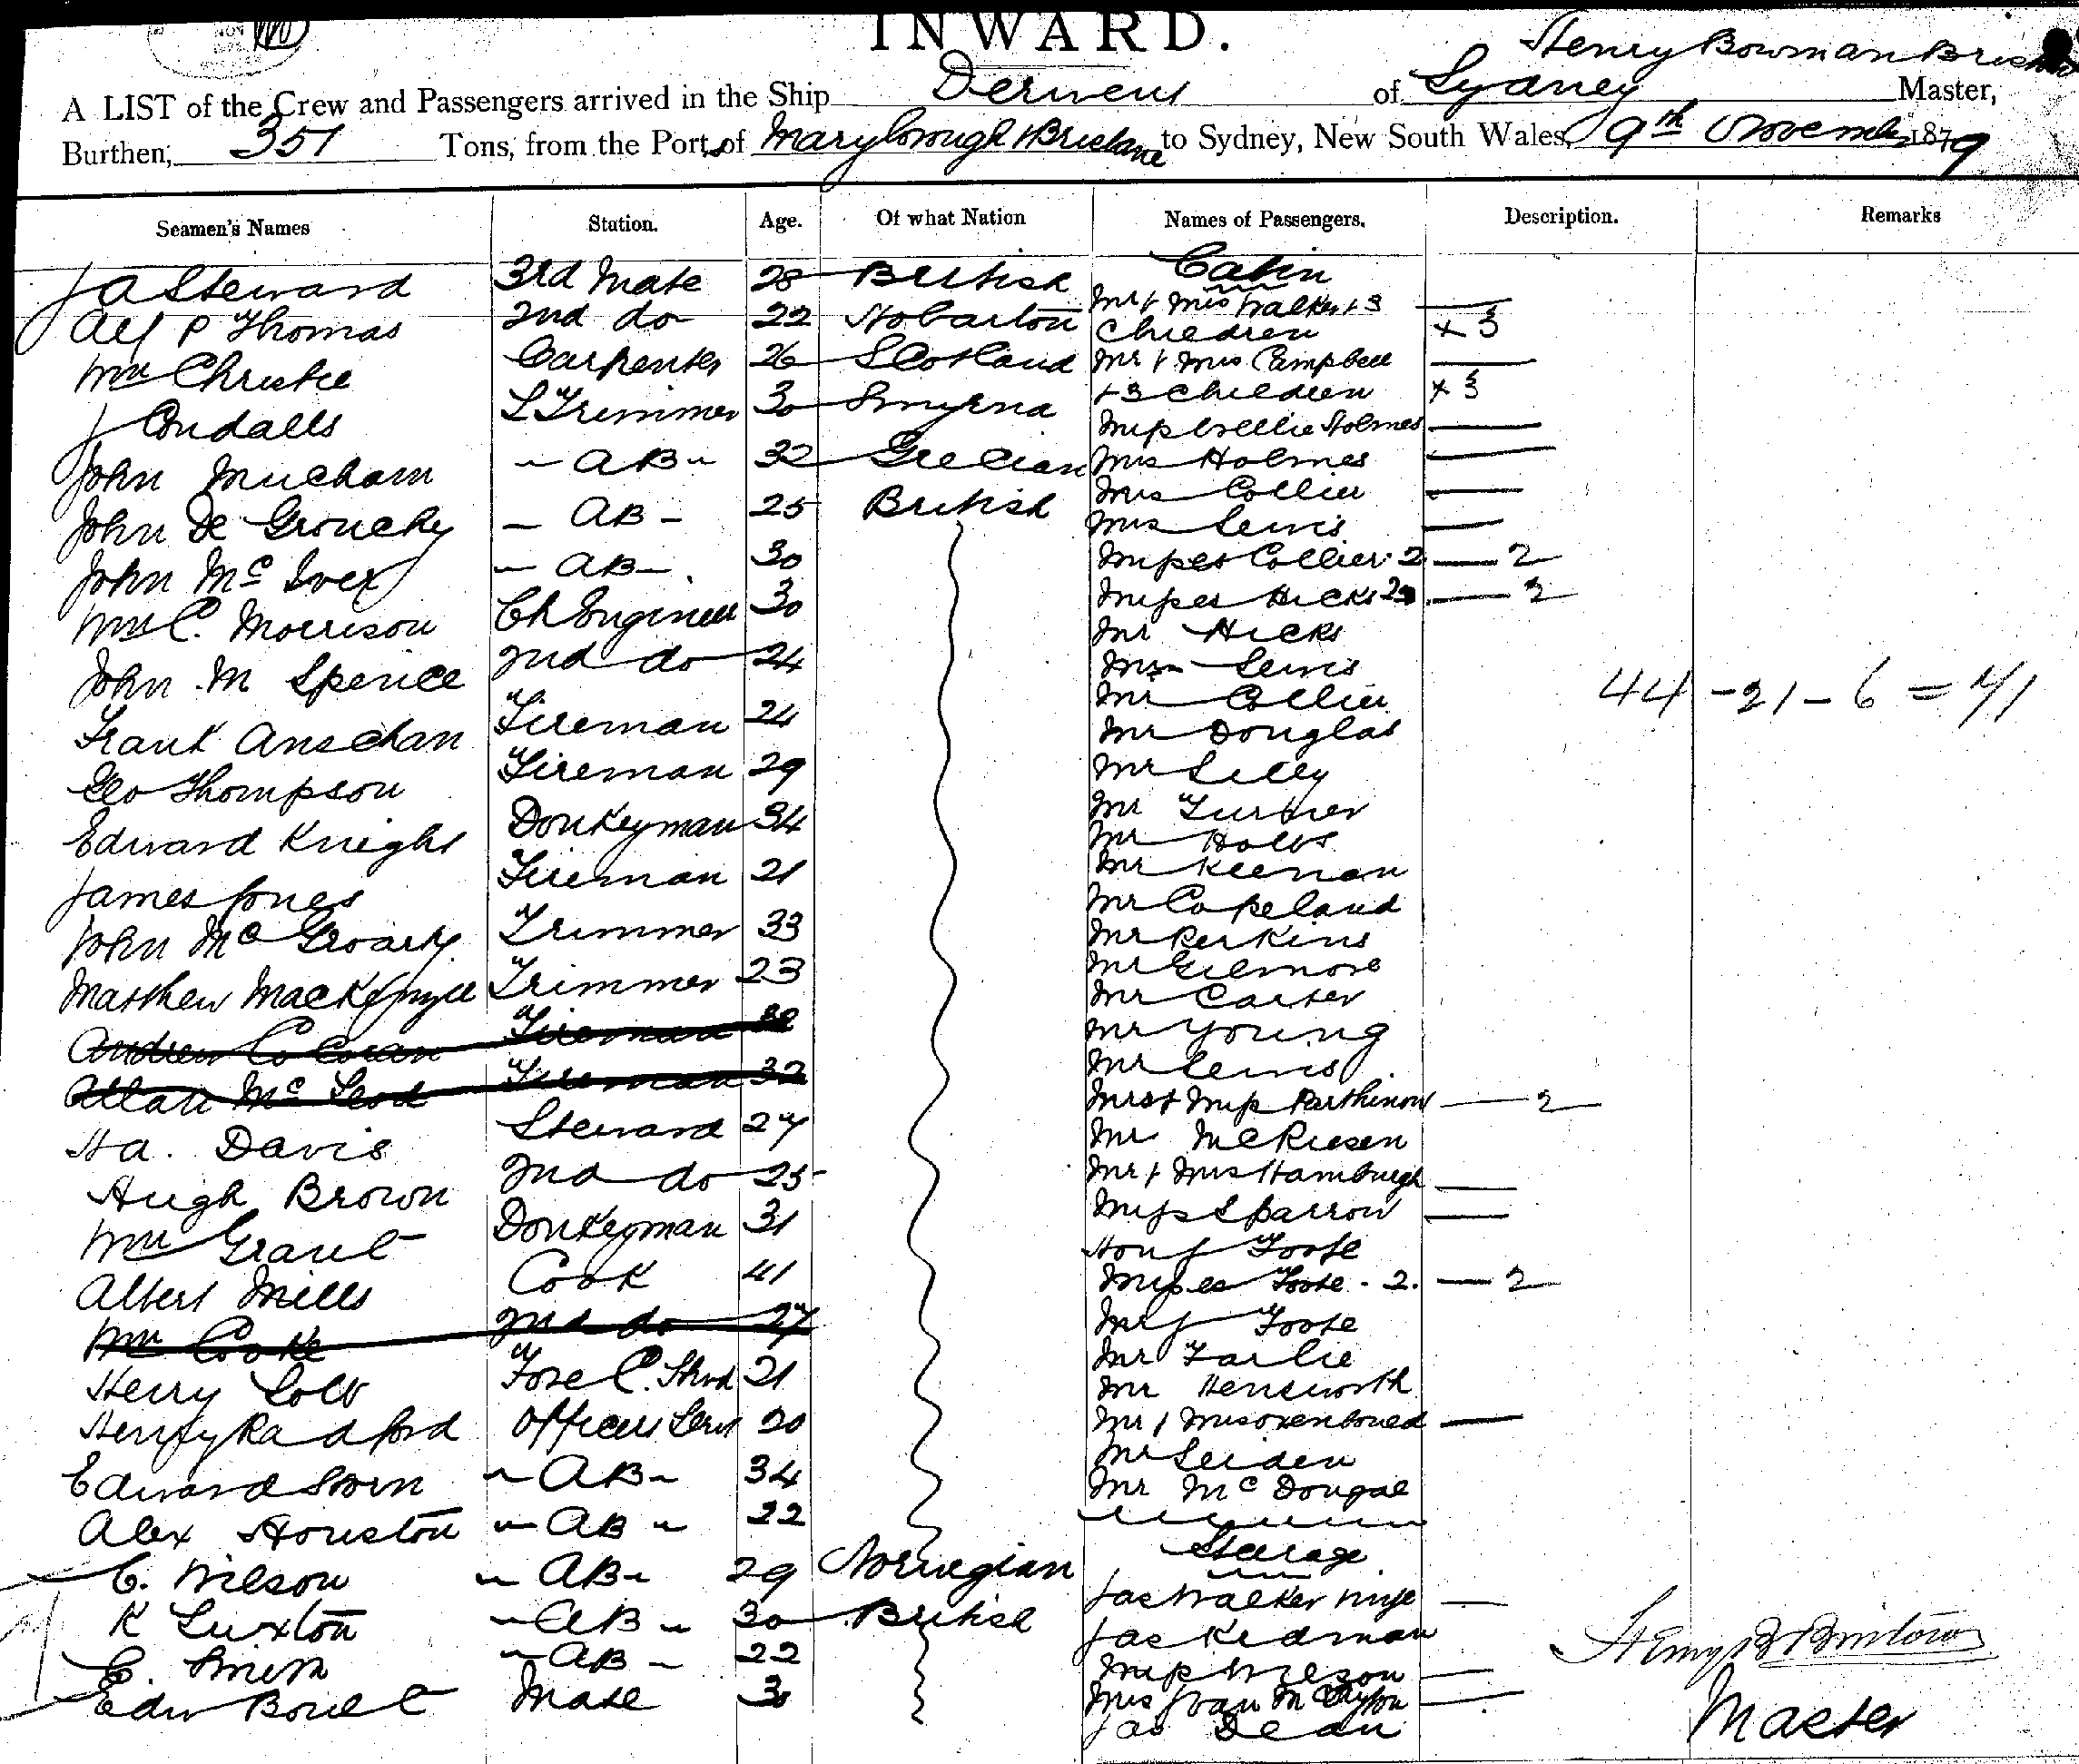 INWARD.
Henry Bowman
A LIST of the Crew and Passengers arrived in the Ship Derwent of Sydney Master,
Burthen, 351 Tons, from the Ports of Maryborough & Brisbane to Sydney, New South Wales, 9th November 1879
Seamen's Names Station. Age. Of what Nation Names of Passengers. Description. Remarks
Cabin
J A Steward 3rd Mate 28 British Mr & Mrs Walker & 3
Alf P Thomas 2nd do 22 Hobarton Children x 3
Wm Christie Carpenter 26 Scotland Mr & Mrs Campbell
J Condalls L Trimmer 30 Smyrna + 3 Children x 3
Miss Nellie Holmes
John Mucham AB 32 Grecian Mrs Holmes
John De Grouchy AB 25 British Mrs Collier
Mrs Lewis
John McIver AB 30 Misses Collier 2 2
Wm C. Morrison Ch Engineer 30 Misses Hicks 2 2
Mr Hicks
John M Spence 2nd do 24 Lewis
44 - 21 - 6 = 71
Frank Anschan Fireman 24 Mr Collier
Mr Douglas
Geo Thompson Fireman 29 Mr Lilly
Edward Knight Donkeyman 34 Mr Turner
Mr Holts
James Jones Fireman 21 Mr Keenan
Mr Copeland
John McGroarty Trimmer 33 Mr Perkins
Matthew Mackenzie Trimmer 23 Mr Gilmore
Mr Carter
Andrew Cocoran Fireman Mr Young
Allan McLeod Fireman 32 Mr Lewis
Mrs & Miss 2
Ha. Davis Steward 27 Mr
Hugh Brown 2nd do 25 Mr & Mrs Hamburgh
Wm Grant Donkeyman 31 Miss Sparrow
Hon J Foote
Albert Mills Cook 41 Misses Foote - 2. 2
Wm Cooke 2nd do 27 Mr J Foote
Mr Farlie
Henry Colb Fore C. Stwd 21 Mr Hensworth
Henry Radford Officers Servt 20 Mr & Mrs
Edward Storn AB 34 Mr Leiden
Mr McDougal
Alex Houston AB 22
Steerage
C. Wilson AB 29 Norwegian Jas Walker wife
K Luxton AB 30 British Jas Kidman
E. Smith AB 22 Miss Wilson
Edw Boult Mate 30 Mrs
Jas Dean
Henry B Bristow
Master